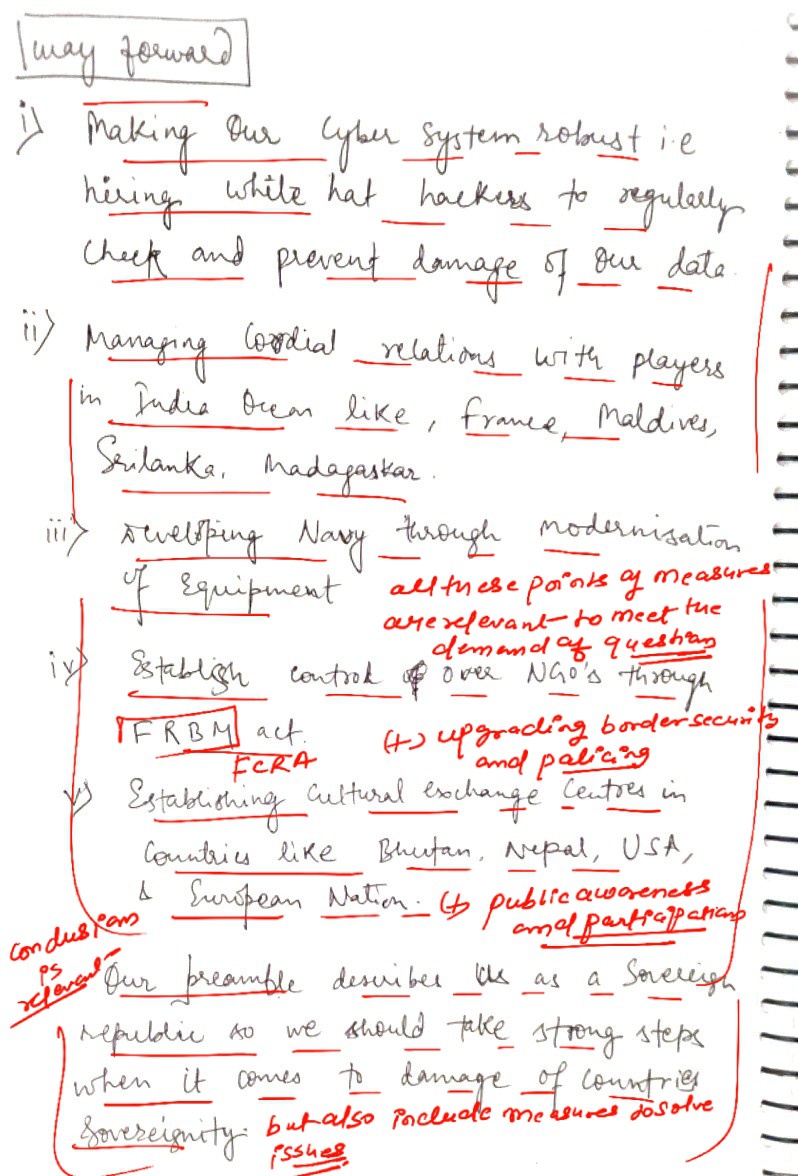 way forward
i) Making Our Cyber System robust i.e
hiring white hat hackers to regularly
check and prevent damage of our data.
ii) Managing Cordial relations with players
in India Ocean like, France, Maldives,
Srilanka, Madagaskar.
iii) Developing Navy through modernisation
of Equipment
all these points of measures
are relevant to meet the
demand of question
iv) Establish control over NGO's through
FRBM act.
FCRA
(+) upgrading border security
and policing
v) Establishing Cultural exchange Centres in
Countries like Bhutan, Nepal, USA,
& European Nation.
(+) public awareness
and participations
conclusion
is
relevant
Our preamble describes Us as a Sovereign
republic so we should take strong steps
when it comes to damage of countries
Sovereignity.
but also include measures to solve
issues